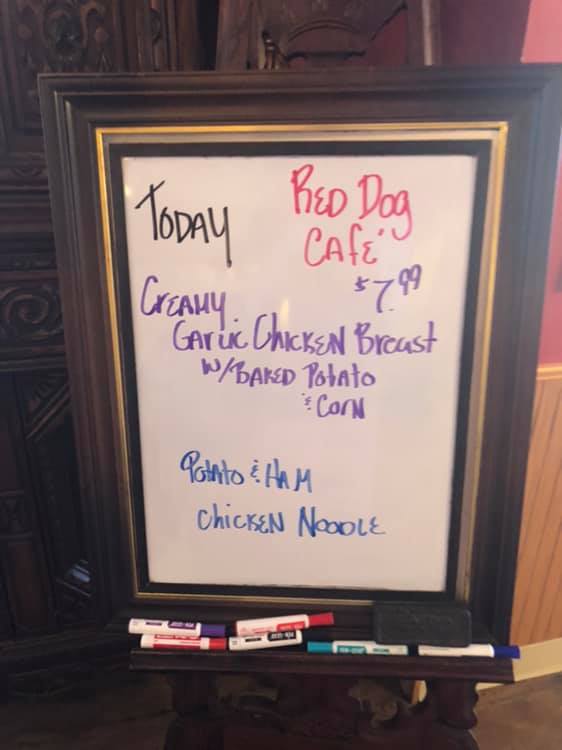 TODAY
RED DOG
CAFÉ
$7.99
CREAMY
GARLIC CHICKEN Breast
W/BAKED POTATO
& CORN
Potato & HAM
CHICKEN NOODLE